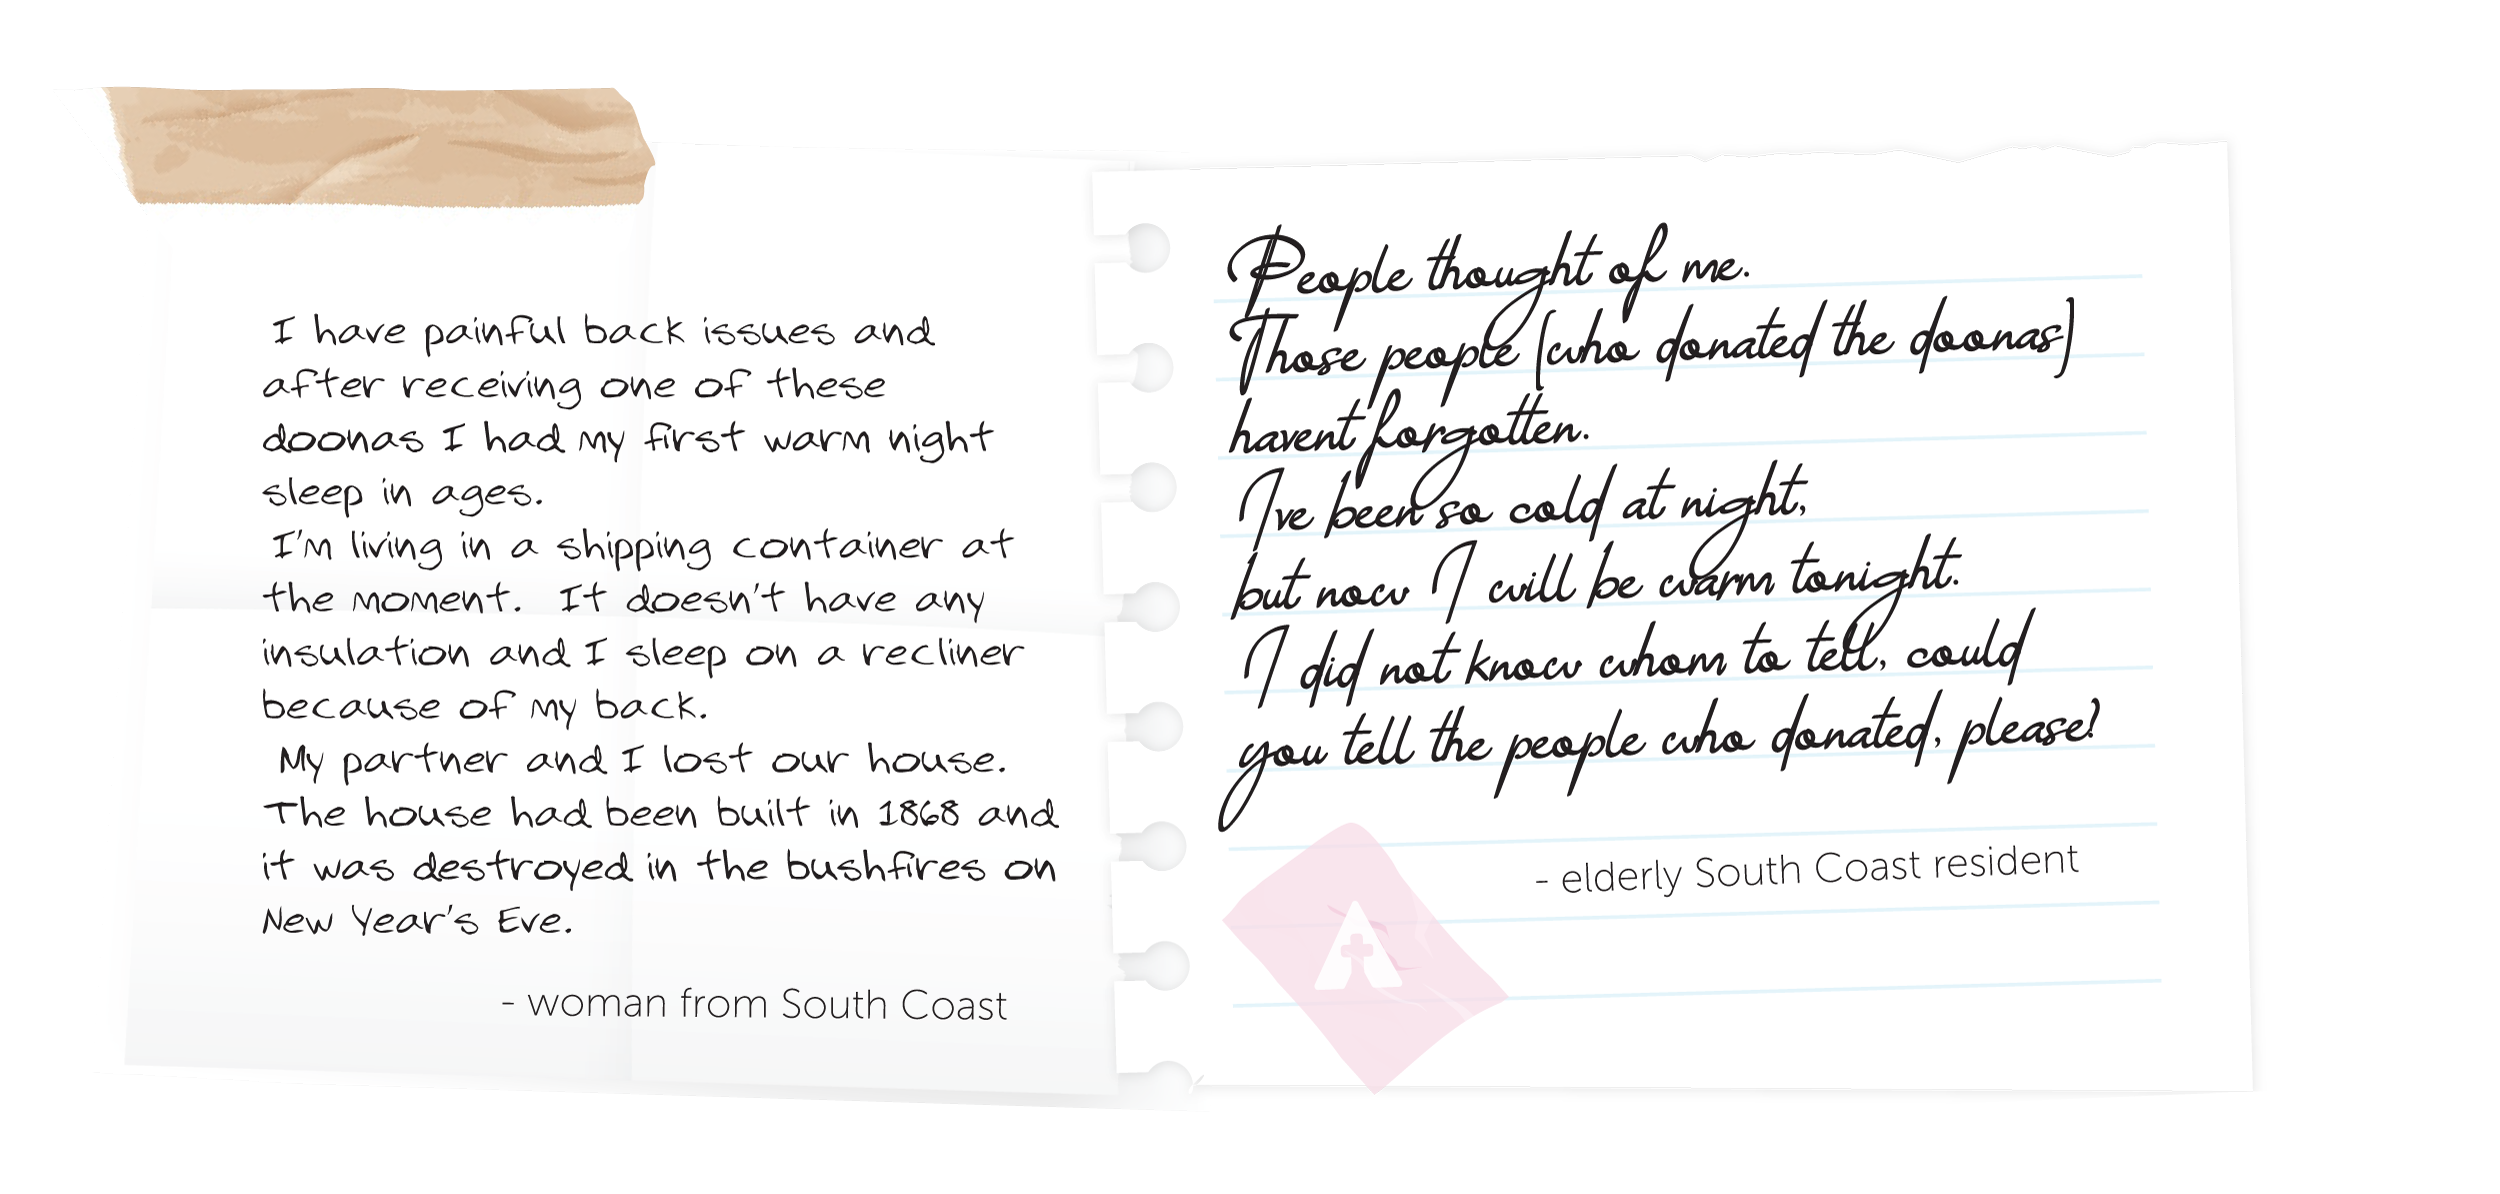 I have painful back issues and
after receiving one of these
doonas I had my first warm night
sleep in ages.
I'm living in a shipping container at
the moment. It doesn't have any
insulation and I sleep on a recliner
because of my back.
My partner and I lost our house.
The house had been built in 1868 and
it was destroyed in the bushfires on
New Year's Eve.
- woman from South Coast
People thought of me.
Those people (who donated the doonas)
havent forgotten.
I've been so cold at night,
but now I will be warm tonight.
I did not know whom to tell, could
you tell the people who donated, please?
- elderly South Coast resident